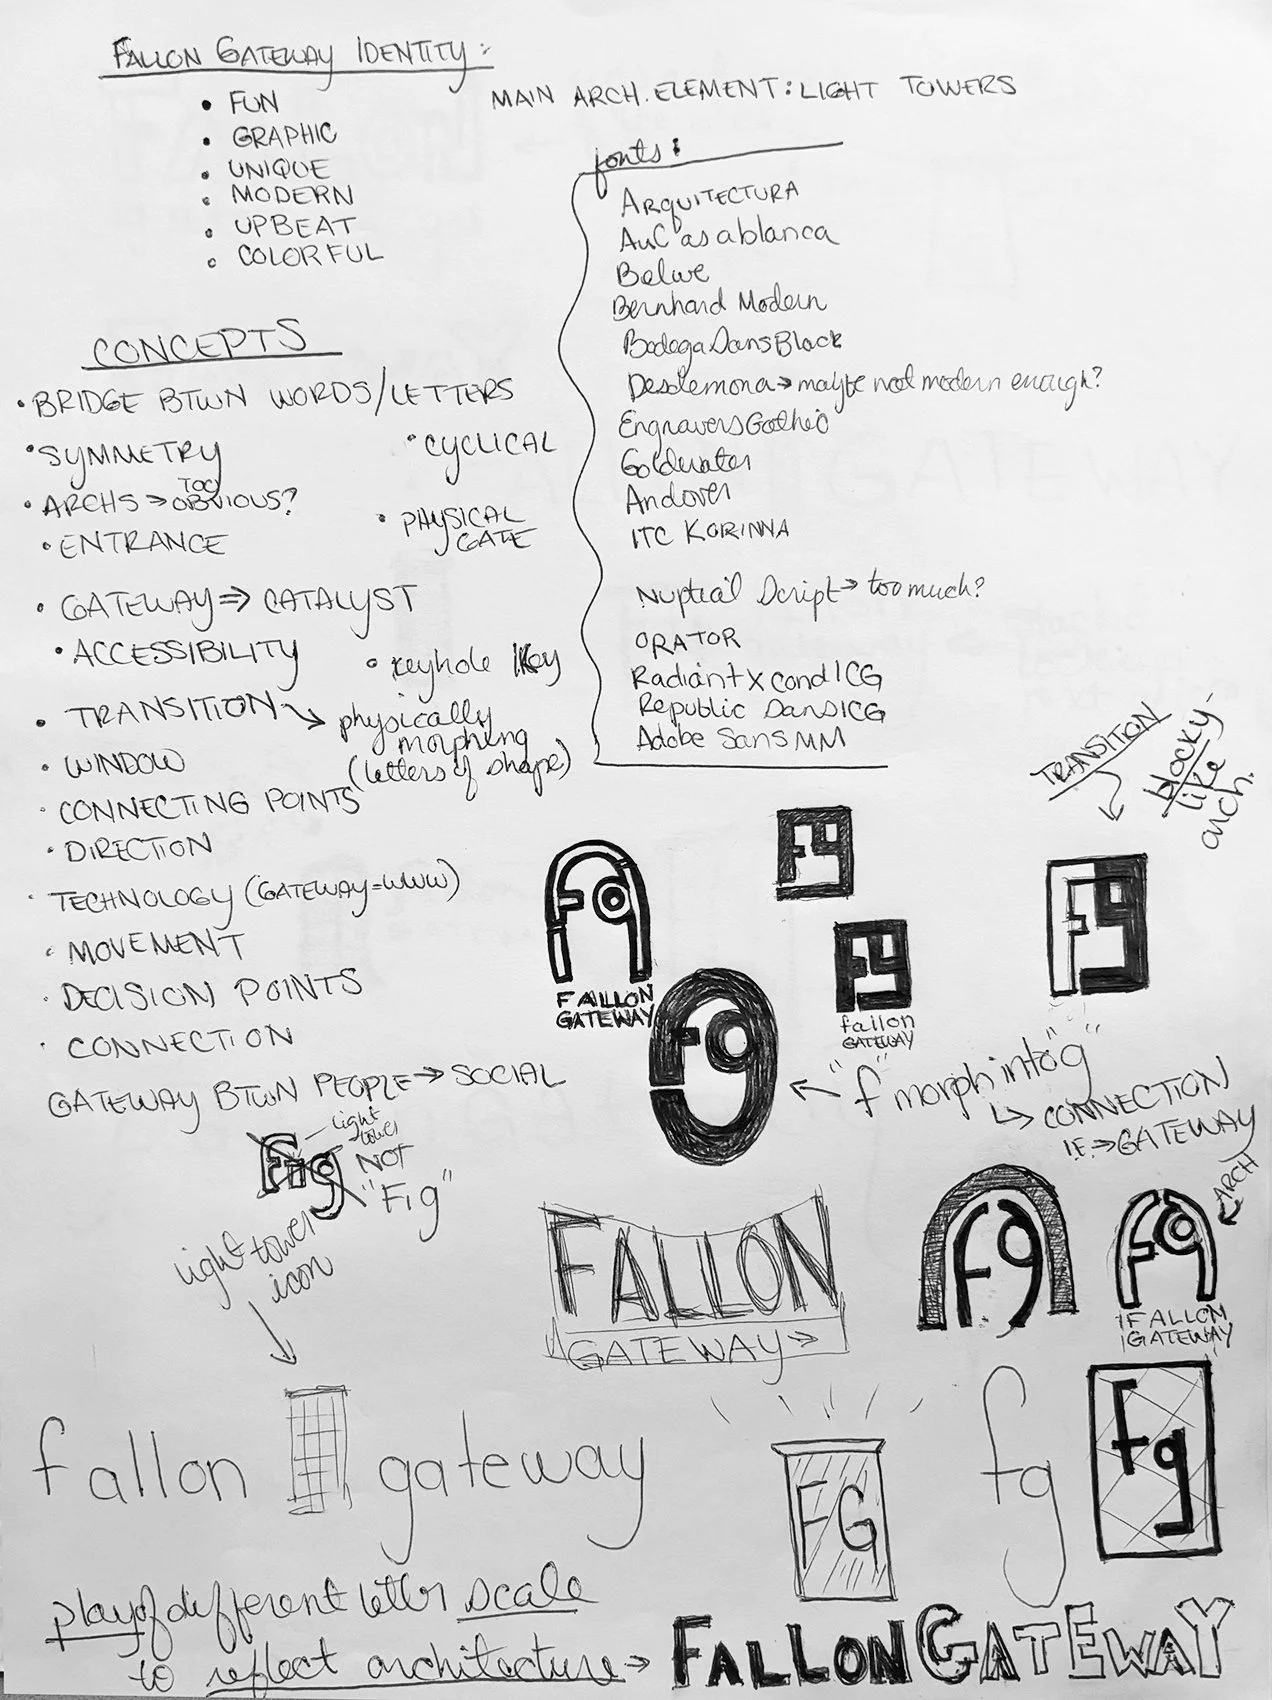 FALLON GATEWAY IDENTITY:
• FUN
• GRAPHIC
• UNIQUE
• MODERN
• UPBEAT
• COLORFUL
MAIN ARCH. ELEMENT: LIGHT TOWERS
fonts:
ARQUITECTURA
AuCasablanca
Belwe
Bernhard Modern
BodegaSansBlack
Desdemona → maybe not modern enough?
EngraversGothic
Goldwater
Andover
ITC KORINNA
Nuptial Script → too much?
ORATOR
Radiant X cond ICG
Republic Sans ICG
Adobe Sans MM
CONCEPTS
• BRIDGE BTWN WORDS/LETTERS
• SYMMETRY
• CYCLICAL
• ARCHS → TOO OBVIOUS?
• PHYSICAL GATE
• ENTRANCE
• GATEWAY ⇒ CATALYST
• ACCESSIBILITY
• keyhole / Key
• TRANSITION → physically
morphing
(letters if shape)
• WINDOW
• CONNECTING POINTS
• DIRECTION
• TECHNOLOGY (GATEWAY=WWW)
• MOVEMENT
• DECISION POINTS
• CONNECTION
GATEWAY BTWN PEOPLE → SOCIAL
TRANSITION
blocky-
like
arch.
Fg
fg
FAILLON
GATEWAY
Fg
failon
GATEWAY
Fg
Fg
"f" morph into "g"
↳ CONNECTION
I.E. → GATEWAY
Fig
light
tower
NOT
"Fig"
light tower
icon
FALLON
GATEWAY →
fg
fg
ARCH
FALLON
GATEWAY
fallon gateway
FG
fg
fg
play of different letter scale
to reflect architecture →
FALLON GATEWAY